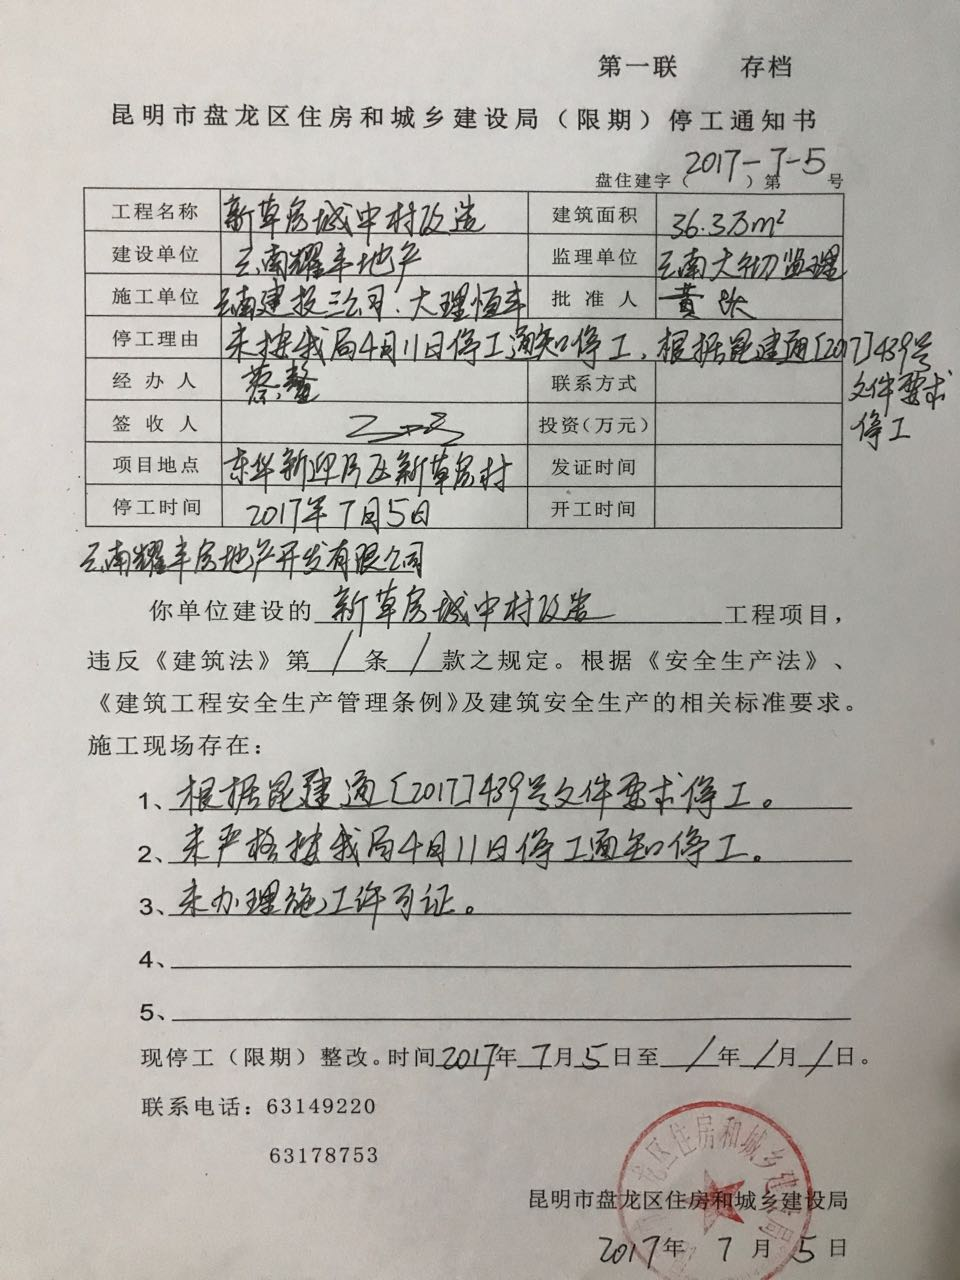 第一联 存档
昆明市盘龙区住房和城乡建设局（限期）停工通知书
盘住建字（2017-7-5）第 号
工程名称 新草房城中村改造 建筑面积 36.3万m²
建设单位 云南耀丰地产 监理单位 云南大韧监理
施工单位 云南建投三公司、大理恒丰 批准人 黄
停工理由 未按我局4月11日停工通知停工、根据昆建通[2017]439号
文件要求
停工
经办人 蔡鳌 联系方式
签收人 投资(万元)
项目地点 东华新迎片区新草房村 发证时间
停工时间 2017年7月5日 开工时间
云南耀丰房地产开发有限公司
你单位建设的 新草房城中村改造 工程项目，
违反《建筑法》第 / 条 / 款之规定。根据《安全生产法》、
《建筑工程安全生产管理条例》及建筑安全生产的相关标准要求。
施工现场存在：
1、根据昆建通[2017]439号文件要求停工。
2、未严格按我局4月11日停工通知停工。
3、未办理施工许可证。
4、
5、
现停工（限期）整改。时间2017年7月5日至/年/月/日。
联系电话：63149220
63178753
龙区住房和城乡建设局
昆明市盘龙区住房和城乡建设局
2017年7月5日